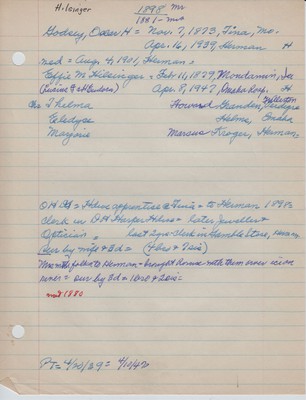 Hilsinger 1898 mr
1881 - mo
Godsey, Oscar H = Nov 7, 1873, Tina, Mo.
Apr. 16, 1939, Herman H
md = Aug. 4, 1901, Herman,
Effie M Hilsinger = Feb 11, 1879, Mondamin, Ia
Apr. 8, 1947, Omaha Hosp. H
Ch Thelma Howard
Eledyce Helms, Omaha
Marjorie Marcus Kroger, Herman,
OHG = Hdwe apprentice @ Tina = to Herman 1898
clerk in DH Harper Hdwe = later Jeweller &
Optician, last 2 yrs clerk in Gamble Store, Herman
sur by wife & 3d = (+ bro & 2sis)
Mrs = with folks to Herman = brought house with them over
river = sur by 3d & 1 bro & 2sis =
md 1880
PT = 4/20/39 = 4/10/47